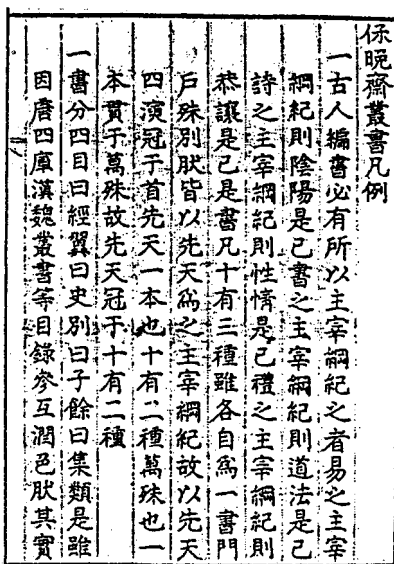 保晩齋叢書凡例
一古人編書必有所以主宰綱紀之者易之主宰
綱紀則陰陽是已書之主宰綱紀則道法是已
詩之主宰綱紀則性情是已禮之主宰綱紀則
恭讓是已是書凡十有三種雖各自爲一書門
戶殊別肰皆以先天爲之主宰綱紀故以先天
四演冠于首先天一本也十有二種萬殊也一
本貫于萬殊故先天冠于十有二種
一書分四目曰經翼曰史別曰子餘曰集類是雖
因唐四庫漢魏叢書等目錄參互潤色肰其實